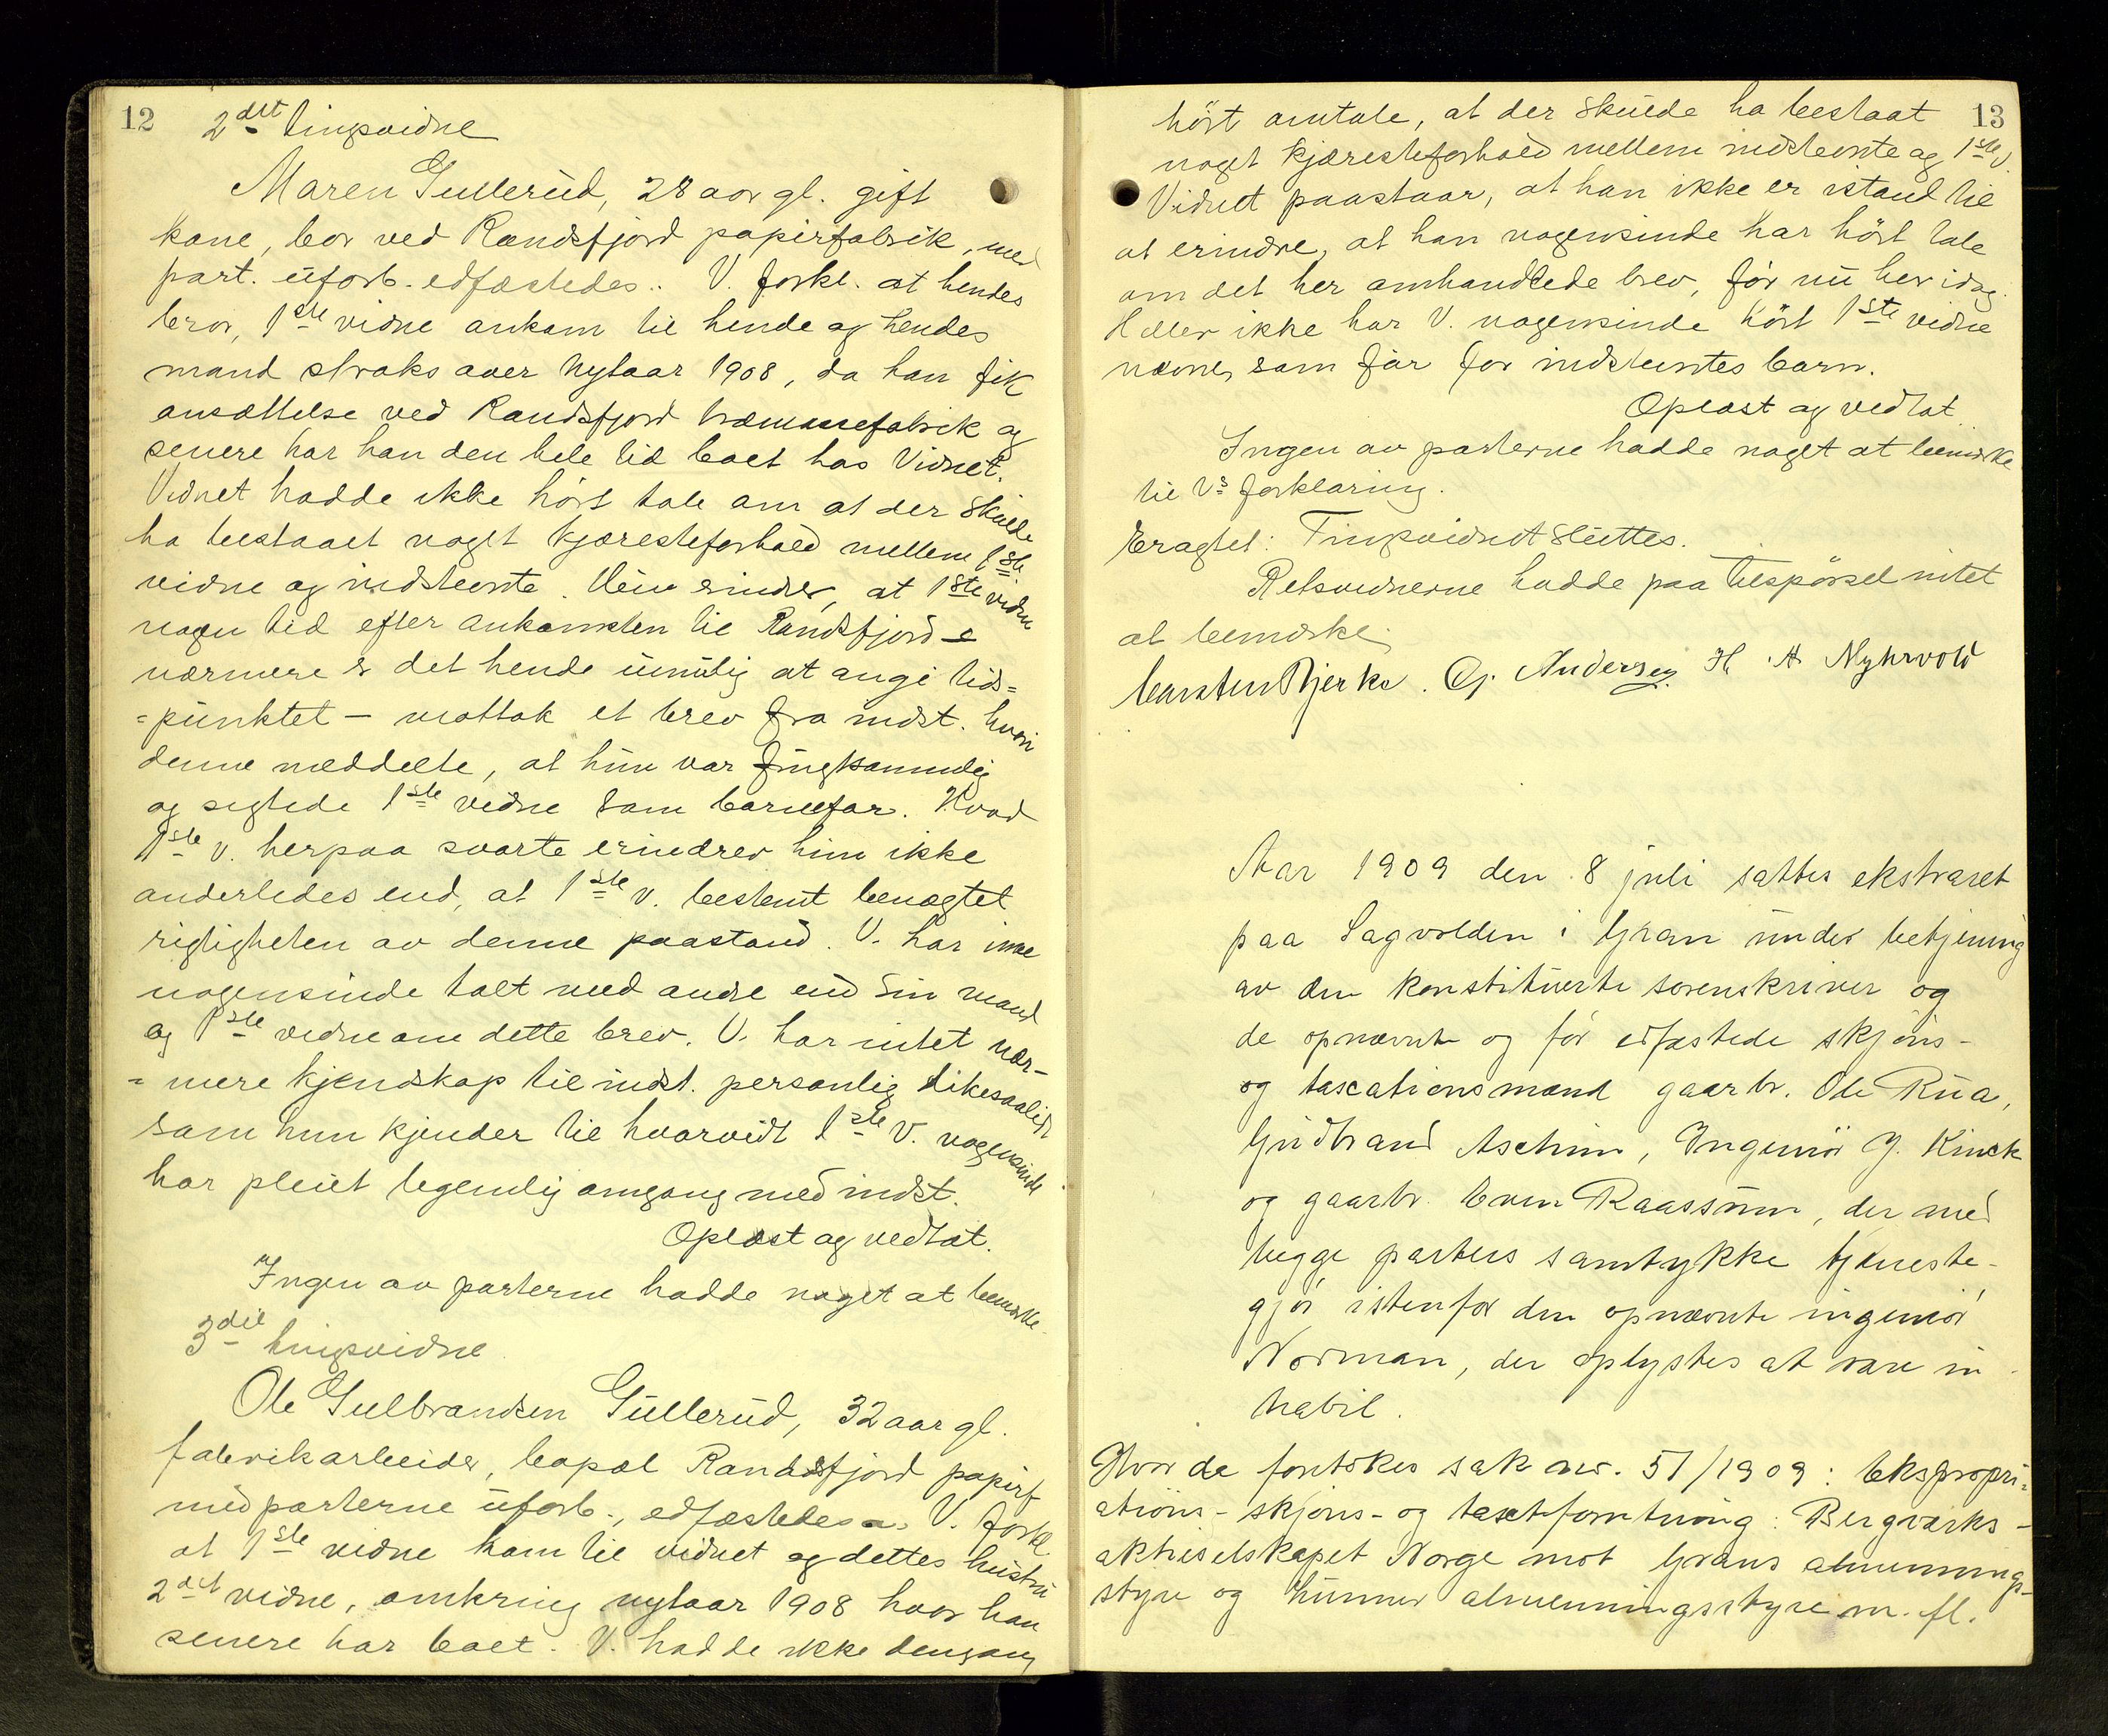 12
2det tingsvidne
Maren Gullerud, 28 aar gl. gift
kone, bor ved Randsfjord papirfabrik, med
part. uforb. edfæstedes. V. forkl. at hendes
bror, 1ste vidne ankom til hende og hendes
mand straks over nytaar 1908, da han fik
ansættelse ved Randsfjord træmassefabrik og
senere har han den hele tid boet hos Vidnet.
Vidnet hadde ikke hørt tale om at der skulde
ha bestaaet noget kjæresteforhold mellem 1ste
vidne og indstevnte. Hun erindrer, at 1ste vidne
nogen tid efter ankomsten til Randsfjord -
nærmere er det hende umulig at angi tids=
=punktet — mottok et brev fra indst. hvori
denne meddelte, at hun var frugtsommelig
og sigtede 1ste vidne som barnefar. Hvad
1ste v. herpaa svarte erindrer hun ikke
anderledes end, at 1ste v. bestemt benægtet
rigtigheten av denne paastand. V. har ikke
nogensinde talt med andre end sin mand
og 1ste vidne om dette brev. V. har intet nær-
=mere kjendskap til indst. personlig likesaalidt
som hun kjender til hvorvidt 1ste V. nogensinde
har pleiet legemlig omgang med indst.
Oplæst og vedtat.
Ingen av parterne hadde noget at bemerke.
3die tingsvidne
Ole Gulbrandsen Gullerud, 32 aar gl.
fabrikarbeider, bopæl Randsfjord papirf
med parterne uforb., edfæstedes. V. forkl
at 1ste vidne kom til vidnet og dettes hustru
2det vidne, omkring nytaar 1908 hvor han
senere har boet. V. hadde ikke dengang
13
hørt omtale, at der skulde ha bestaat
noget kjæresteforhold mellem indstevnte og 1ste v.
Vidnet paastaar, at han ikke er istand til
at erindre, at han nogensinde har hørt tale
om det her omhandlede brev, før nu her idag.
Heller ikke har V. nogensinde hørt 1ste vidne
nævnes som far for indstevntes barn.
Oplæst og vedtat.
Ingen av parterne hadde noget at bemerke
til Vs forklaring.
Eragtet: Tingsvidnet sluttes.
Retsvidnerne hadde paa tilspørsel intet
at bemerke.
Carsten Bjerke. Andersen H. A. Nyhrvold
Aar 1909 den 8 juli sattes ekstraret
paa Sagvolden i Gran under betjening
av den konstituerte sorenskriver og
de opnævnte og før edfæstede skjøns-
og taxationsmænd gaarbr. Ole Rua,
Gudbrand Aschim, Ingeniør J. Kinck
og gaarbr. Even Raassum, der med
begge parters samtykke tjeneste-
gjør istenfor den opnævnte ingeniør
Norman, der oplystes at være in-
habil.
Hvor da foretokes sak nr. 51/1909: Ekspropri=
ations- skjøns- og taxtforretning: Bergværks-
aktieselskapet Norge mot Grans almennings-
styre og Lunner almenningsstyre m. fl.